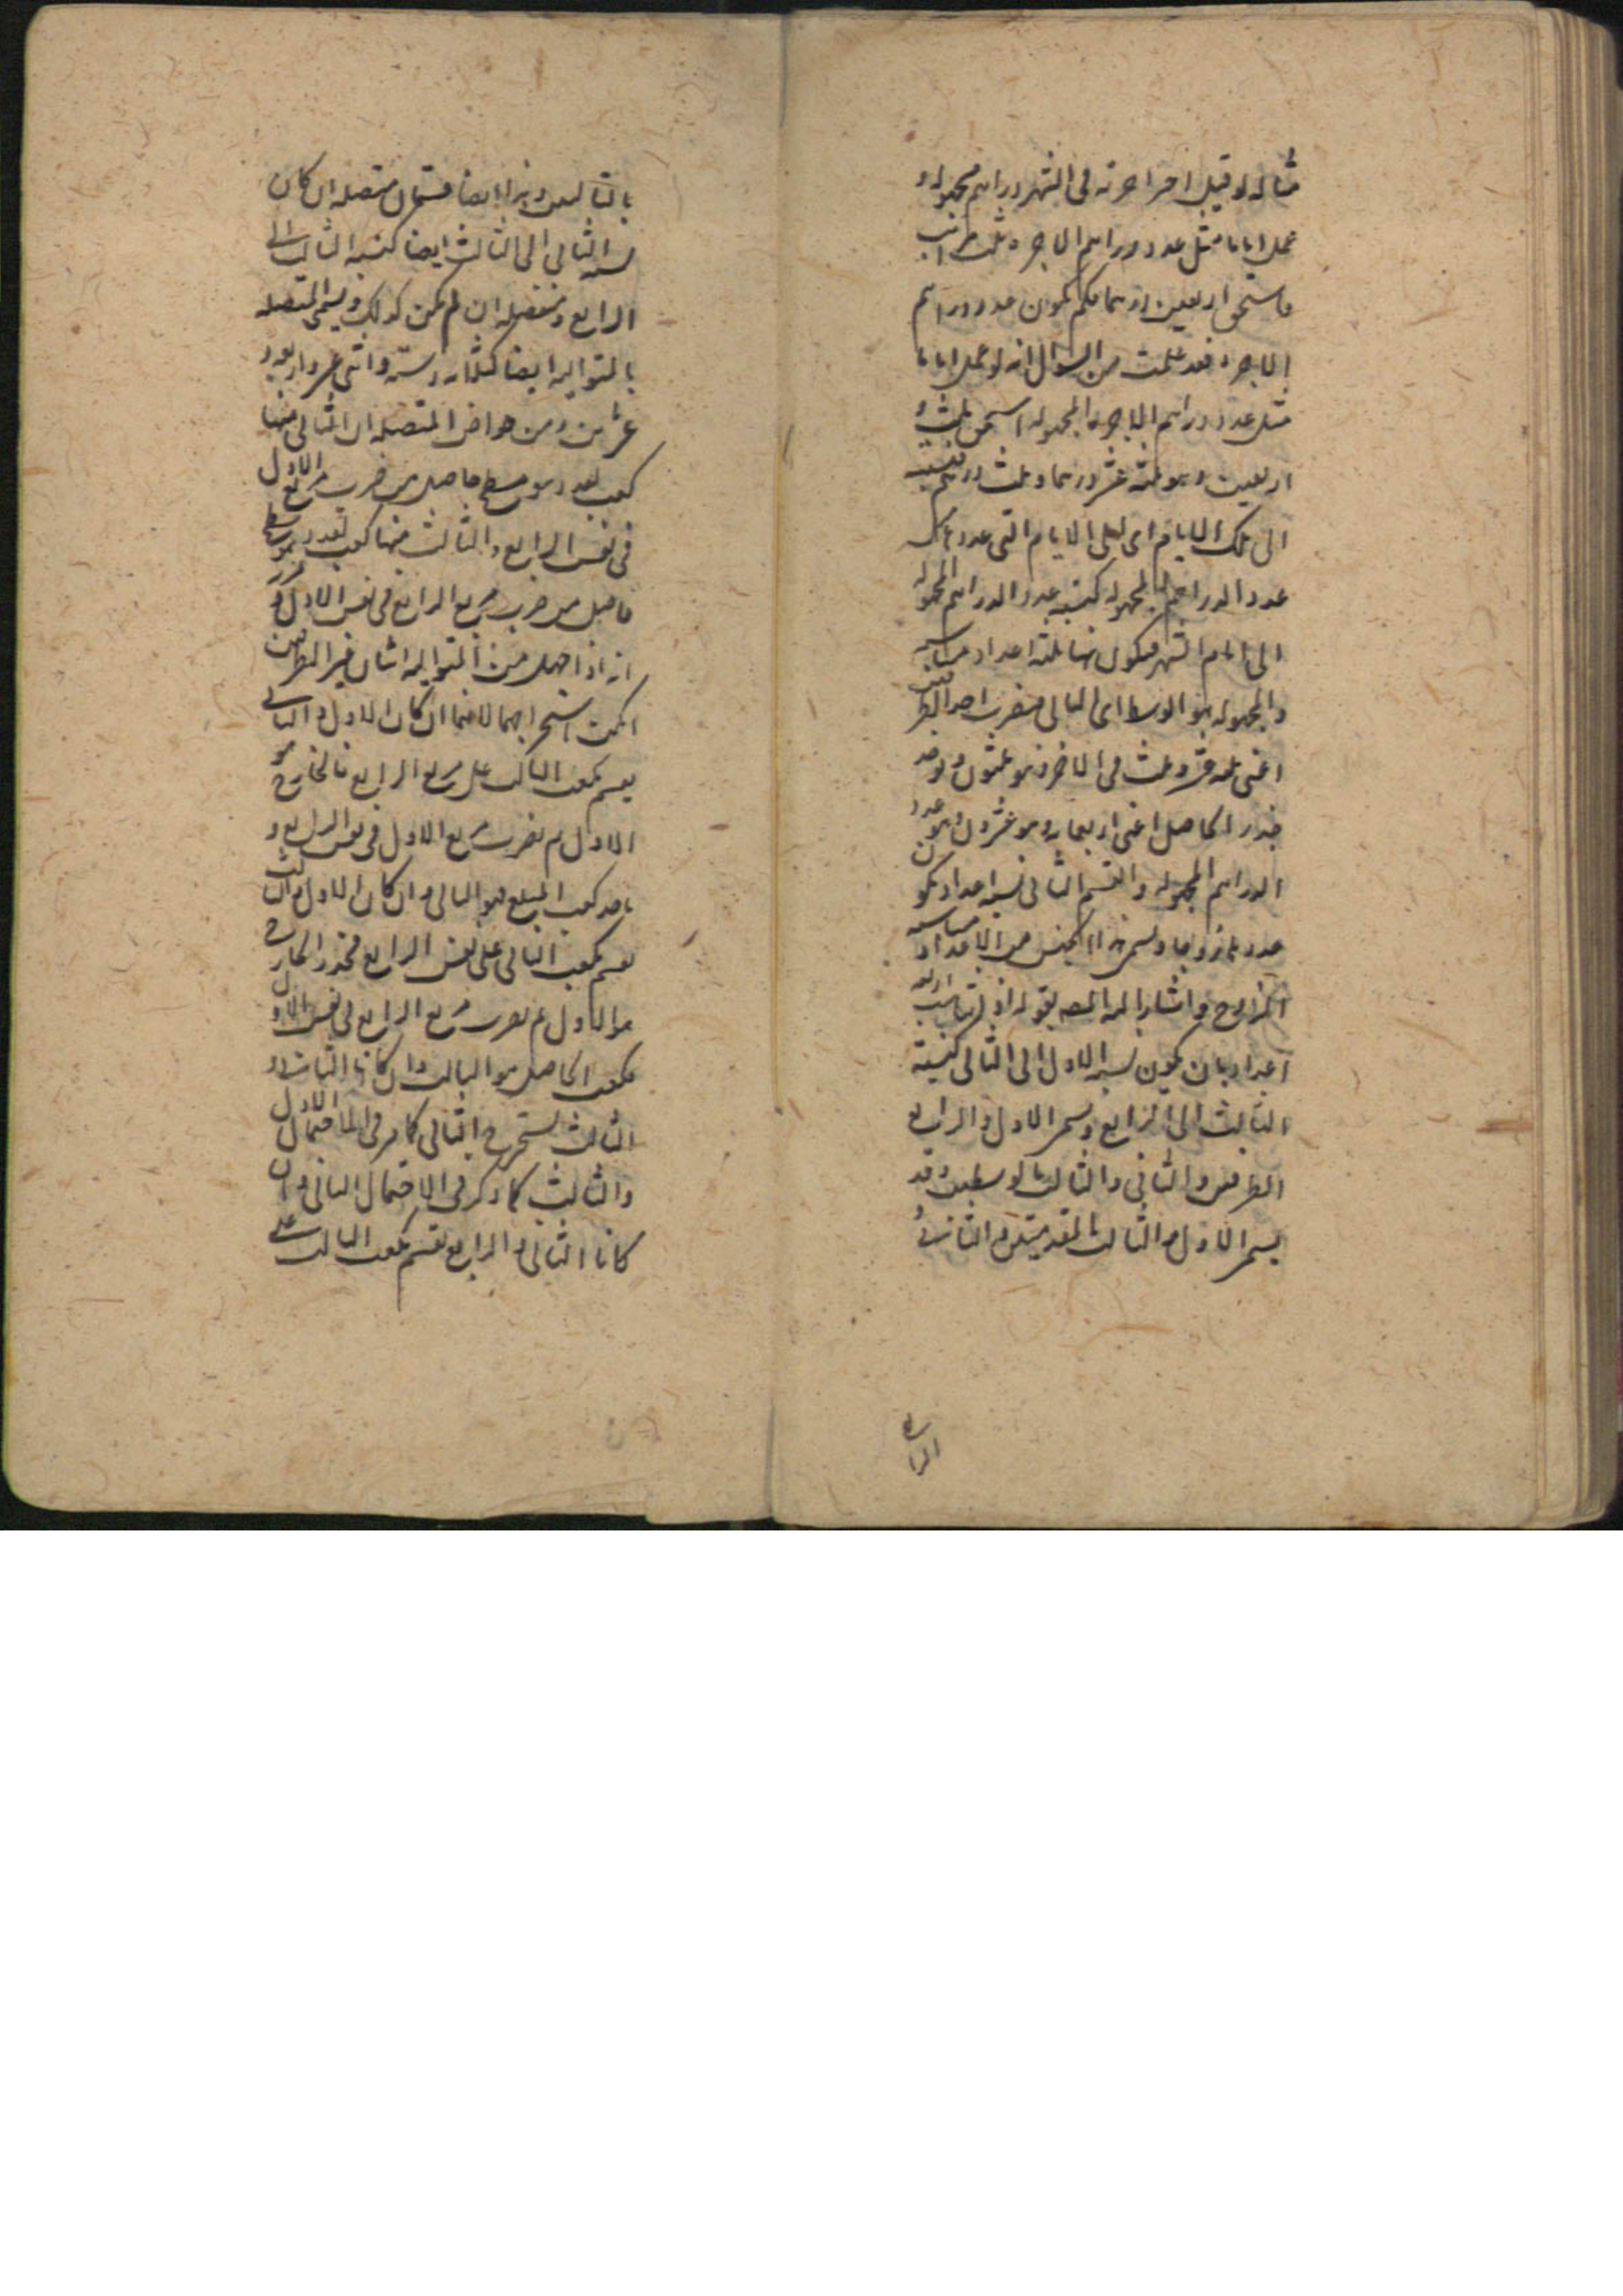 مثاله لو قيل اجير اجرته في الشهر دراهم مجهولة و
عمل اياما مثل عدد دراهم الاجرة ثلث مرات
فاستحق اربعين درهما فكم يكون عدد دراهم
الاجرة فقد علمت من السؤال انه لو عمل اياما
مثل عدد دراهم الاجرة المجهولة استحق ثلث
اربعين وهو ثلثة عشر درهما وثلث درهم فنسبته
الى تلك الايام اى الى الايام التى عددها
عدد الدراهم المجهولة كنسبة عدد الدراهم المجهولة
الى ايام الشهر فيكون هنا ثلثة اعداد متناسبة
والمجهولة هو الوسط اى الثانى فنضرب احد الطرفين
اعنى ثلثة عشر وثلث فى الاخر وهو ثلثون ونوجد
جذر الحاصل اعنى اربعمائة وهو عشرون وهو عدد
الدراهم المجهولة والقسم الثانى نسبة اعداد يكون
عدد ها زوجا ويسمى هذا الجنس من الاعداد متناسبة
المزدوج واشار اليه المصه بقوله اذ تناسب اربعة
اعداد بان يكون نسبة الاول الى الثانى كنسبة
الثالث الى الرابع ويسمى الاول والرابع
الطرفين والثانى والثالث بالوسطين وقد
يسمى الاول والثالث بالمقدمين والثانى و
الرابع
بالتاليين وهذا ايضا قسمان متصلة ان كان
نسبة الثانى الى الثالث ايضا كنسبة الثالث الى
الرابع ومنفصلة ان لم يكن كذلك ويسمى المتصلة
بالمتوالية ايضا كثلثة وستة واثنى عشر واربعة و
عشرين ومن خواص المتصلة ان الثانى منها
كعب لعدد هو مسطح حاصل من ضرب مربع الاول
فى نفس الرابع والثالث منها كعب لعدد هو مسطح
حاصل من ضرب مربع الرابع فى نفس الاول و
انه اذا جهل من المتوالية اثنان غير الطرفين
امكن استخراجهما لانهما ان كان الاول والثانى
يقسم مكعب الثالث على مربع الرابع فالخارج هو
الاول ثم نضرب مربع الاول فى نفس الرابع و
ناخذ كعب المبلغ فهو الثانى وان كان الاول والثالث
نقسم مكعب الثانى على نفس الرابع فجذر الخارج
هو الاول ثم نضرب مربع الرابع فى نفس الاول
فكعب الحاصل هو الثالث وان كانا الثانى و
الثالث نستخرج الثانى كما مر فى الاحتمال الاول
والثالث كما ذكر فى الاحتمال الثانى وان
كانا الثانى والرابع نقسم مكعب الثالث على